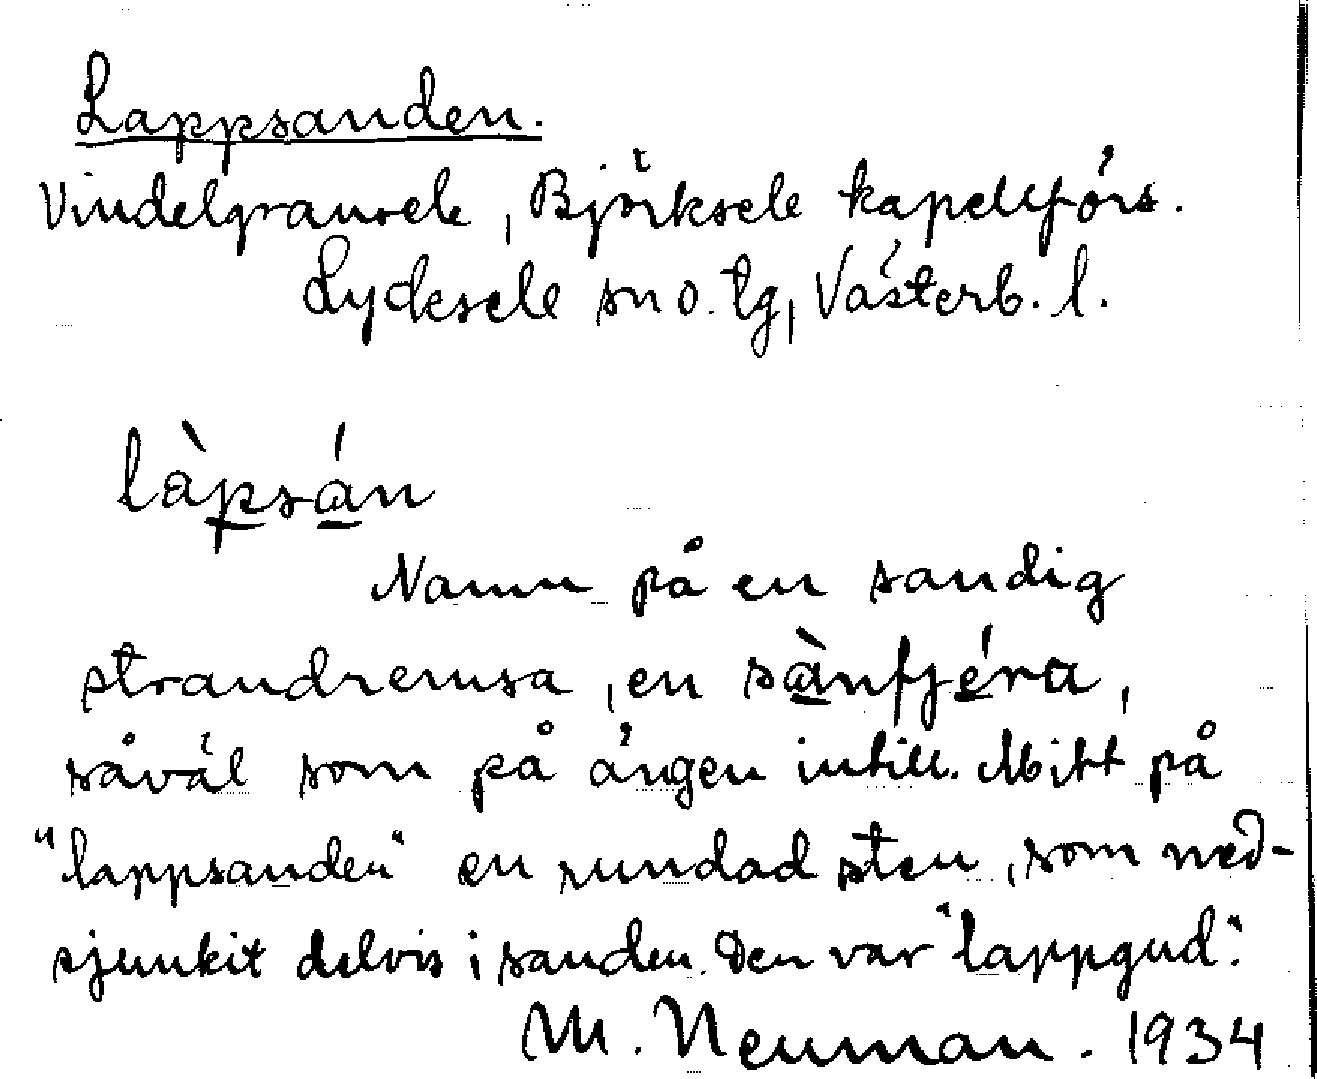 Lappsanden.
Vindelgransele, Björksele kapellförs.
Lycksele sn o. tg, Västerb. l.
làpsán
Namn på en sandig
strandremsa, en sànfjéra,
såväl som på ängen intill. Mitt på
"lappsanden" en rundad sten, som ned-
sjunkit delvis i sanden. Den var "lappgud".
M. Neuman. 1934